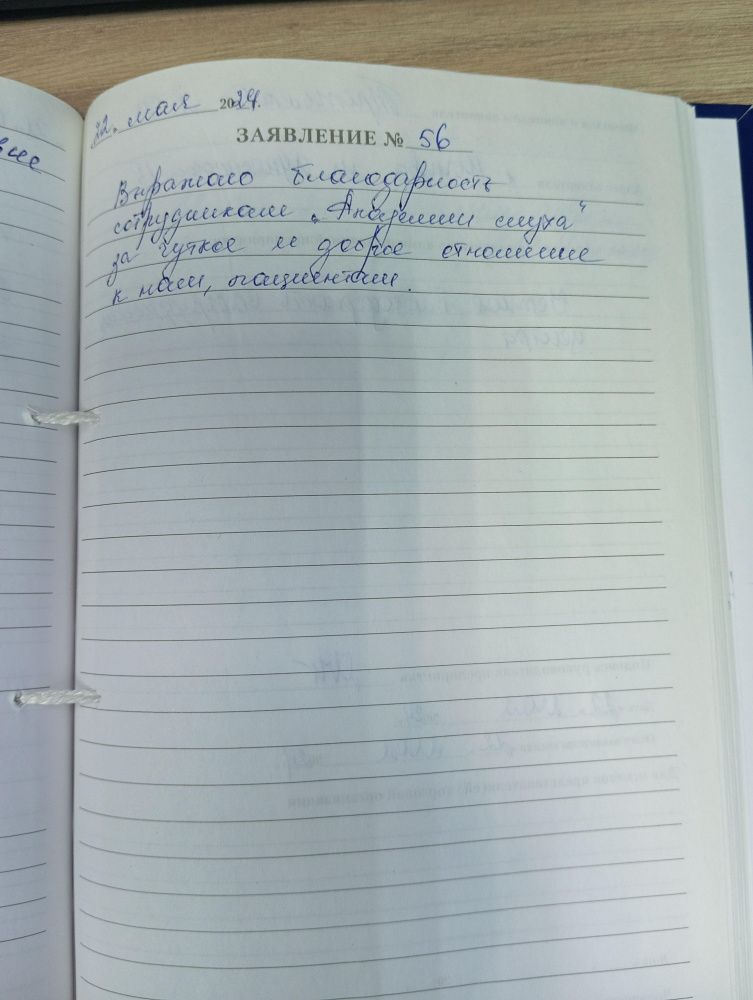 22. мая 2024г.
ЗАЯВЛЕНИЕ № 56
Выражаю благодарность
сотрудникам „Академии слуха“
за чуткое и доброе отношение
к нам, пациентам.